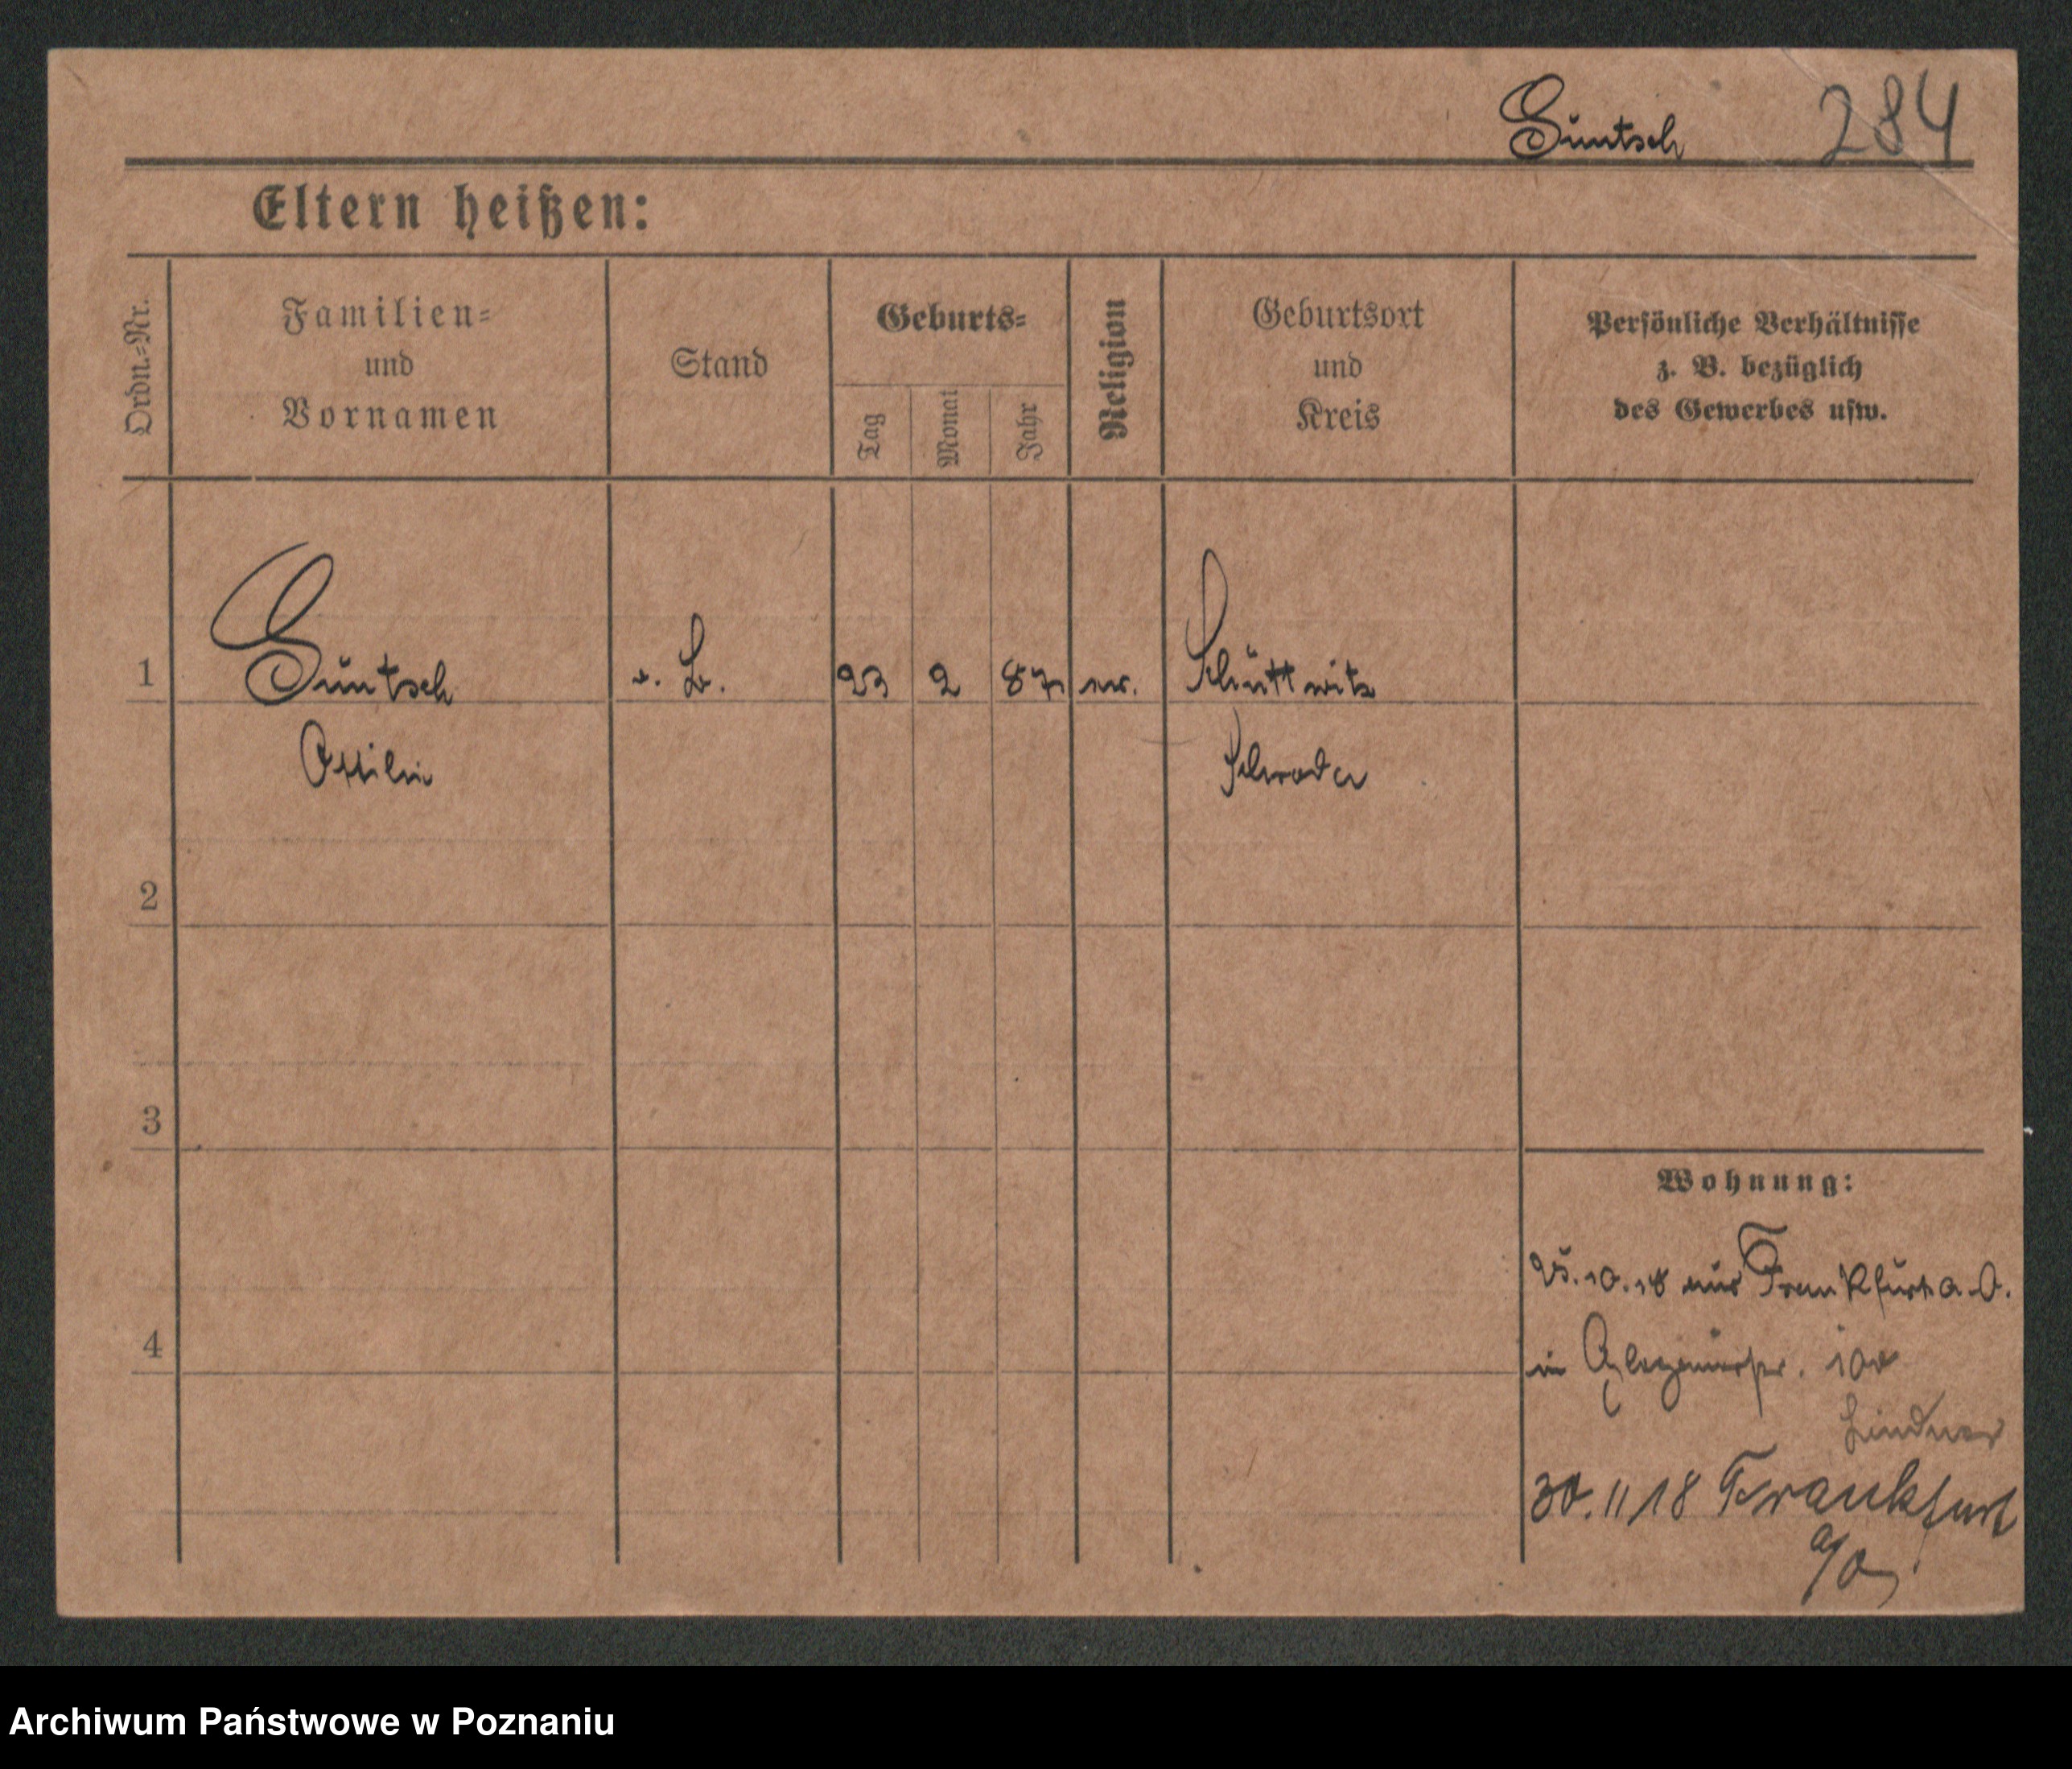 284
Eltern heißen:
Ordn.=Nr.
Familien=
und
Vornamen
Stand
Geburts=
Tag
Monat
Jahr
Religion
Geburtsort
und
Kreis
Persönliche Verhältnisse
z. B. bezüglich
des Gewerbes usw.
1
23 2 87
Ottilie
Schroda
2
3
4
Wohnung:
25.10.18 aus Frankfurt a. O.
in
Lindner
30.11.18 Frankfurt
a/O
Archiwum Państwowe w Poznaniu